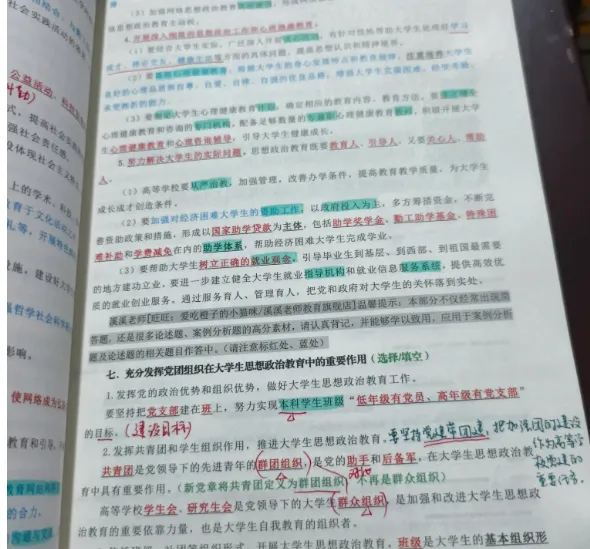 (3)加强网络思想政治教育
强思想政治教育主动权。
4.开展深入细致的思想政治工作和心理健康教育。
(1)要结合大学生实际,广泛深入开展谈心活动,有针对性地帮助大学生处理好学习
成才、择业交友、健康生活等方面的具体问题,提高思想认识和精神境界。
良好的心理品质和自尊、自爱、自律、自强的优良品格,增强大学生克服困难、经受考验、
承受挫折的能力。
(3)要制定大学生心理健康教育计划,确定相应的教育内容、教育方法。要
心理健康教育和咨询的专门机构,配备足够数量的专兼职心理健康教育教师,积极开展大学
生心理健康教育和心理咨询辅导,引导大学生健康成长。
5.努力解决大学生的实际问题。思想政治教育既要教育人、引导人,又要关心人、帮助
人。
(1)高等学校要从严治教,加强管理,改善办学条件,提高教育教学质量,为大学生
成长成才创造条件。
(2)要加强对经济困难大学生的资助工作,以政府投入为主,多方筹措资金,不断完
善资助政策和措施,形成以国家助学贷款为主体,包括助学奖学金、勤工助学基金、特殊困
难补助和学费减免在内的助学体系,帮助经济困难大学生完成学业。
(3)要帮助大学生树立正确的就业观念,引导毕业生到基层、到西部、到祖国最需要
的地方建功立业。要进一步建立健全大学生就业指导机构和就业信息服务系统,提供高效优
质的就业创业服务。通过服务育人、管理育人,把党和政府对大学生的关怀落到实处。
溪溪老师[旺旺:爱吃橙子的小猫咪/溪溪老师教育旗舰店]温馨提示:本部分不仅经常出现简
答题,还是很多论述题、案例分析题的高分素材,请认真背记,并能够学以致用,应用于案例分析
题及论述题的相关题目作答中。(请注意标红处、蓝处)
七、充分发挥党团组织在大学生思想政治教育中的重要作用(选择/填空)
1.发挥党的政治优势和组织优势,做好大学生思想政治教育工作。
要坚持把党支部建在班上,努力实现本科学生班级“低年级有党员、高年级有党支部”
的目标。(建设目标)
2.发挥共青团和学生组织作用,推进大学生思想政治教育。要坚持党建带团建,把加强团的建设
作为高等学
校党建的
重要内容。
共青团是党领导下的先进青年的群团组织,是党的助手和后备军,在大学生思想政治教
育中具有重要作用。(新党章将共青团定义为群团组织,不再是群众组织)
高等学校学生会、研究生会是党领导下的大学生群众组织,是加强和改进大学生思想政
治教育的重要依靠力量,也是大学生自我教育的组织者。
开展大学生思想政治教育。班级是大学生的基本组织形
公益活动、
式,提高社会
强社会责任感。
设体现社会主义
上的学术、科技、
教育于文化活动之
礼等,开展特
措施,建设好大
强哲学社会科学
影响。
使网络成为弘
教育和引导,
教育网站
的合力。